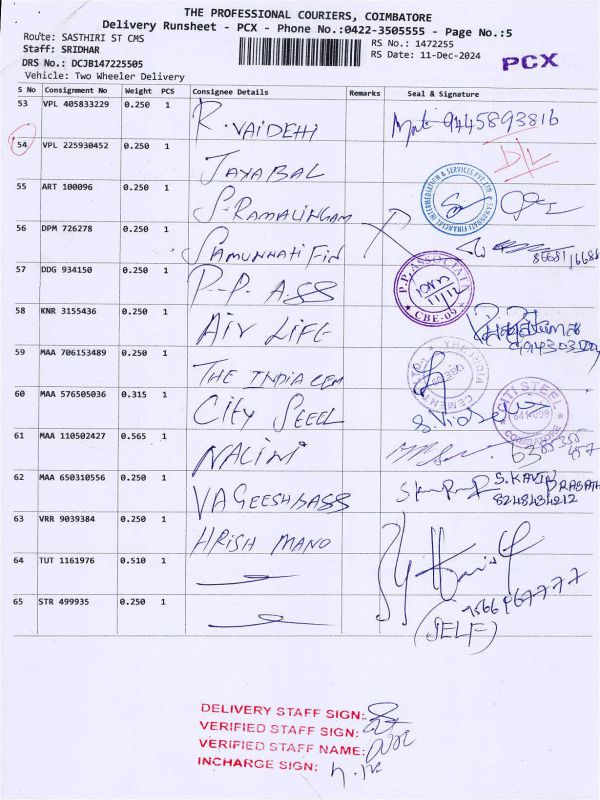 THE PROFESSIONAL COURIERS, COIMBATORE
Delivery Runsheet - PCX - Phone No.:0422-3505555 - Page No.:5
Route: SASTHIRI ST CMS
Staff: SRIDHAR
DRS No.: DCJB147225505
Vehicle: Two Wheeler Delivery
RS No.: 1472255
RS Date: 11-Dec-2024
PCX
S No Consignment No Weight PCS Consignee Details Remarks Seal & Signature
53 VPL 405833229 0.250 1 R. VAIDEHI 9445893816
54 VPL 225930452 0.250 1 JAYABAL D/L
55 ART 100096 0.250 1 S. RAMALINGAM
56 DPM 726278 0.250 1 SAMUNNATI FIN
57 DDG 934150 0.250 1 P.P. ASS
P.P. ASSOCIATA
11/12
CBE-09
58 KNR 3155436 0.250 1 AIR LIFE
59 MAA 706153489 0.250 1 THE INDIA CEM
THE INDIA CEMENT
60 MAA 576505036 0.315 1 CITY STEEL
CITI STEEL
641 009
COIMBATORE
61 MAA 110502427 0.565 1 NALINI
62 MAA 650310556 0.250 1 VAGEESHBASS S. KAVIN PRASATH
8248434212
63 VRR 9039384 0.250 1 HRISH MANO
64 TUT 1161976 0.510 1
65 STR 499935 0.250 1
(SELF)
DELIVERY STAFF SIGN:
VERIFIED STAFF SIGN:
VERIFIED STAFF NAME:
INCHARGE SIGN: